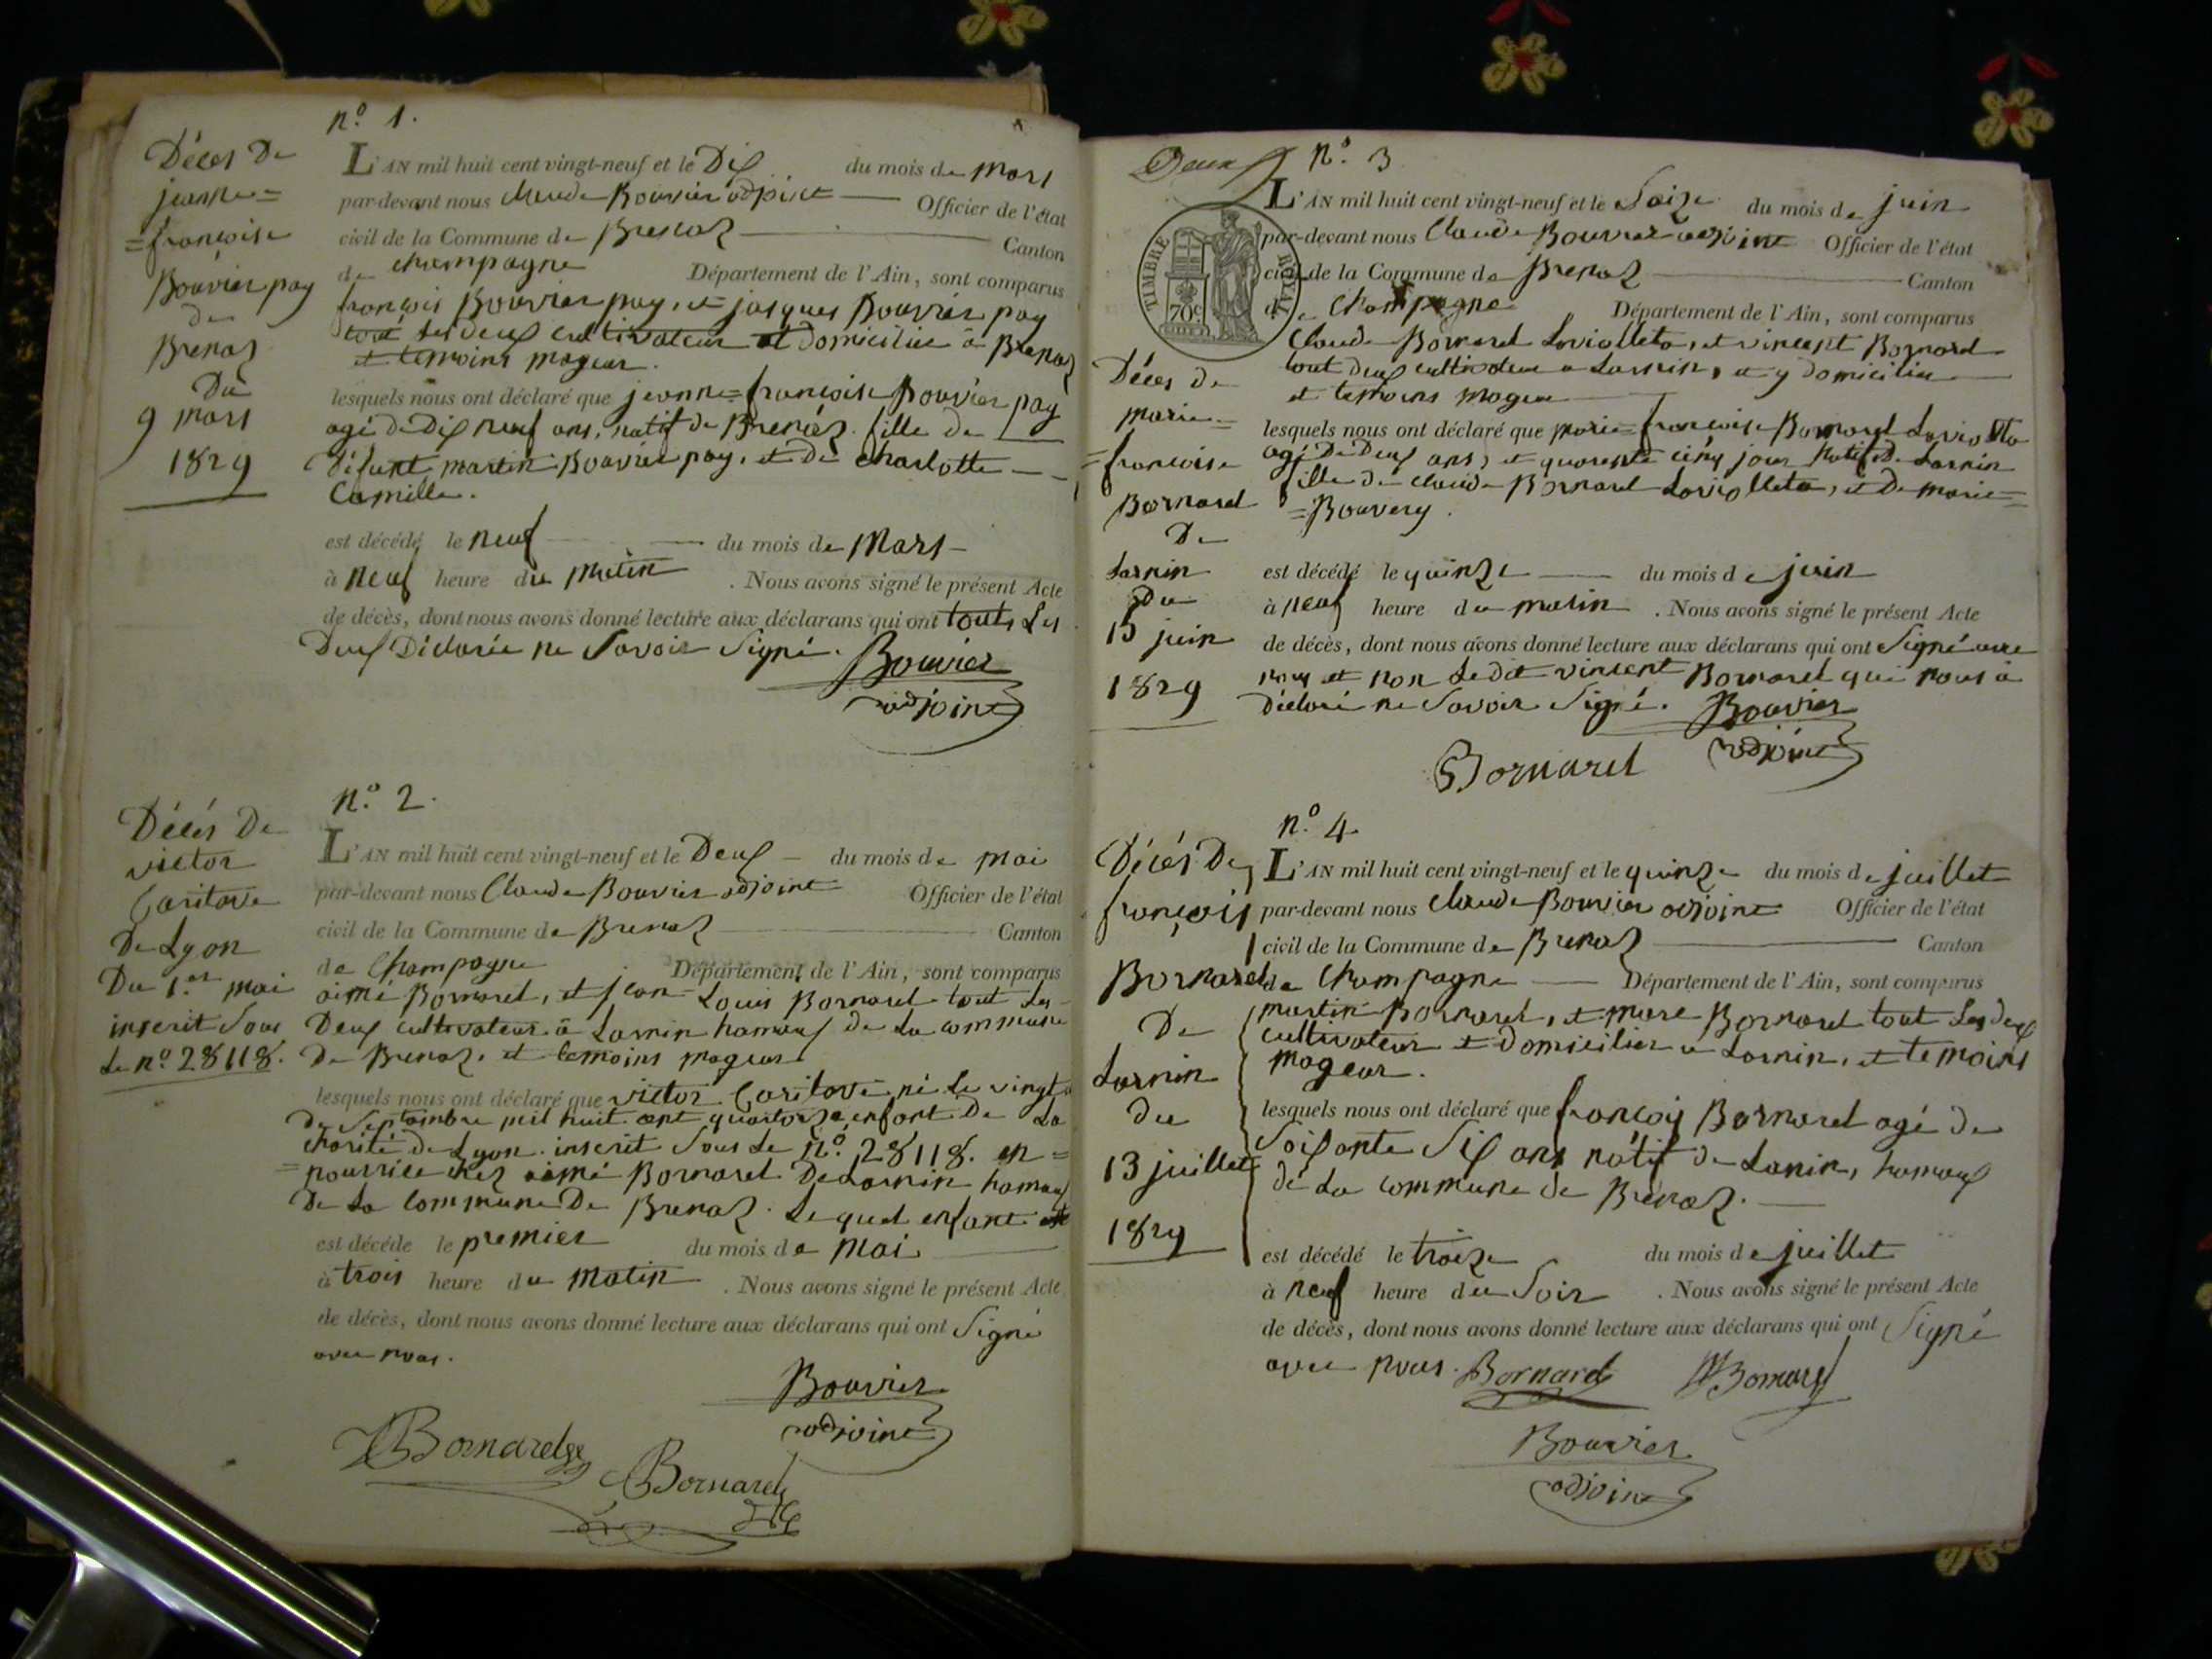 n.º 1.
Décès De
jeanne=
=françoise
Bouvier pay
de
Brenaz
Du
9 mars
1829
L'AN mil huit cent vingt-neuf et le Dix du mois de mars
par-devant nous Claude Bouvier adjoint Officier de l'état
civil de la Commune de Brenaz Canton
de champagne Département de l'Ain, sont comparus
françois Bouvier pay, et jacques Bouvier pay
tout les deux cultivateur et domicilié à Brenaz
et temoins mageur.
lesquels nous ont déclaré que jeanne=françoise Bouvier pay
agé de Dix neuf ans, natif de Brenaz. fille de
Défunt martin Bouvier pay, et de charlotte
Camille.
est décédé le neuf du mois de Mars
à neuf heure du matin . Nous avons signé le présent Acte
de décès, dont nous avons donné lecture aux déclarans qui ont touts Les
Deux Déclarée ne Savoir Signé. Bouvier
adjoint
n.º 2.
Décés De
victor
De Lyon
Du 1.er mai
inscrit Sous
Le n.º 28118.
L'AN mil huit cent vingt-neuf et le Deux du mois de mai
par-devant nous Claude Bouvier adjoint Officier de l'état
civil de la Commune de Brenaz Canton
de Champagne Département de l'Ain, sont comparus
aimé Bornarel, et jean-Louis Bornarel tout Les
Deux cultivateur à Larnin hamaux de La commune
De Brenaz. et temoins mageur
lesquels nous ont déclaré que victor né Le vingt
De Septembre mil huit cent quatorze enfant De La
charité de Lyon. inscrit Sous Le N.º 28118. en=
=nourrice chez aimé Bornarel De Larnin hamaux
De La Commune De Brenaz. Le quel enfant est
est décédé le premier du mois de Mai
à trois heure du Matin . Nous avons signé le présent Acte
de décès, dont nous avons donné lecture aux déclarans qui ont Signé
avec nous.
Bouvier
adjoint
Bornarel
Bornarel
Deux n.º 3
TIMBRE ROYAL
70c
Décès de
marie=
=françoise
Bornarel
De
Larnin
Du
15 juin
1829
L'AN mil huit cent vingt-neuf et le Saize du mois de juin
par-devant nous Claude Bouvier adjoint Officier de l'état
civil de la Commune de Brenaz Canton
de Champagne Département de l'Ain, sont comparus
Claude Bornarel Loviolleta, et vincent Bornarel
tout deux cultivateur a Larnin, et y domicilié
et temoins mageur
lesquels nous ont déclaré que marie=françoise Bornarel Loviolleta
agé De Deux ans, et quarente cinq jour Natif de Larnin
fille de claude Bornarel Loviolleta, et De marie=
=Bouvery.
est décédé le quinze du mois de juin
à neuf heure du matin . Nous avons signé le présent Acte
de décès, dont nous avons donné lecture aux déclarans qui ont Signé avec
nous et non Ledit vincent Bornarel qui nous à
Déclaré ne Savoir Signé. Bouvier
adjoint
Bornarel
n.º 4.
Décés De
françois
Bornarel
De
Larnin
du
13 juillet
1829
L'AN mil huit cent vingt-neuf et le quinze du mois de juillet
par-devant nous Claude Bouvier adjoint Officier de l'état
civil de la Commune de Brenaz Canton
de Champagne Département de l'Ain, sont comparus
martin Bornarel, et marc Bornarel tout Les deux
cultivateur et Domicilier à Larnin, et temoins
mageur.
lesquels nous ont déclaré que françois Bornarel agé de
Soixante Six ans natif de Lanin, hamaux
de La commune de Brenaz.
est décédé le traize du mois de juillet
à neuf heure du Soir . Nous avons signé le présent Acte
de décès, dont nous avons donné lecture aux déclarans qui ont Signé
avec nous. Bornarel MBornarel
Bouvier
adjoint